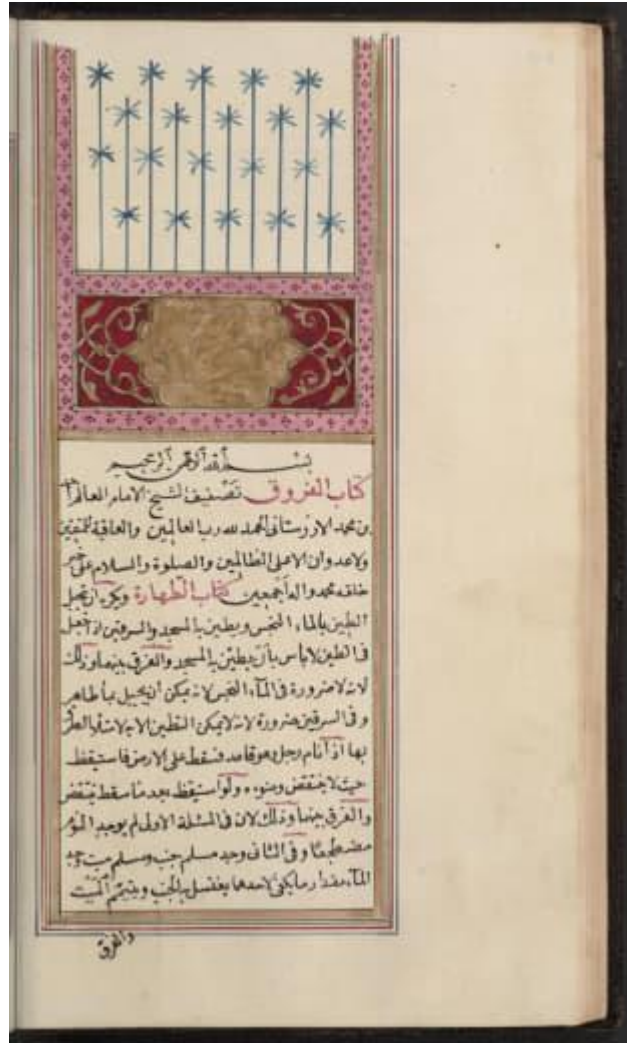 بسم الله الرحمن الرحيم
كتاب الفروق تصنيف الشيخ الامام العالم
بن محمد الاروستاني الحمد لله رب العالمين والعاقبة للمتقين
ولا عدوان الا على الظالمين والصلوة والسلام على خير
خلقه محمد واله اجمعين كتاب الطهارة ويكره ان يجعل
الطين بالماء النجس ويطين به المسجد والسرقين اذا جعل
في الطين لا باس بان يطين به المسجد والفرق بينهما وذلك
لانه لا ضرورة في الماء النجس لانه يمكن ان يجبل بماء طاهر
وفي السرقين ضرورة لانه لا يمكن التطيين الا به
بها اذا نام رجل وهو قاعد فسقط على الارض فاستيقظ
حيث لا ينتقض وضوءه ولو استيقظ بعد ما سقط ينتقض
والفرق بينهما وذلك لان في المسئلة الاولى لم يوجد النوم
مضطجعا وفي الثاني وجد مسلم جنب ومسلم ميت وجد
الماء مقدار ما يكفي لاحدهما يغتسل به الجنب ويتيمم الميت
والفرق